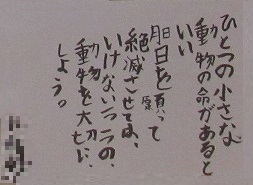 ひとつの小さな
動物の命があると
いい
日を願って
絶滅させては、
いけない
動物を大切に
しよう。